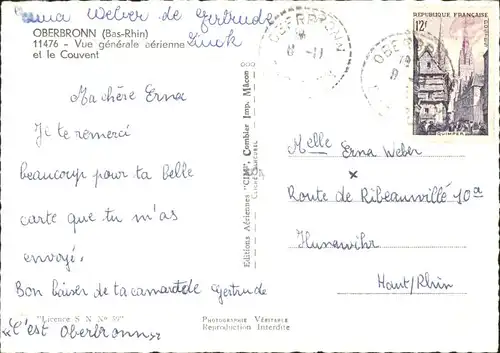 Weber de Gertrude
Zuck
OBERBRONN (Bas-Rhin)
11476 - Vue générale aérienne
et le Couvent
OBERBRONN
8-11
RÉPUBLIQUE FRANÇAISE
12F
QUIMPER
Ma chère Erna
Je te remerci
beaucoup pour ta belle
carte que tu m'as
envoyé.
Bon baiser de ta camarade Gertrude
"Licence S N N° 59"
«C'est Oberbronn»
Editions Aériennes "CIM", Combier Imp. Mâcon
PHOTOGRAPHIE VÉRITABLE
Reproduction Interdite
Melle Erna Weber
x
Route de Ribeauvillé 10a
Hunawihr
Haut/Rhin